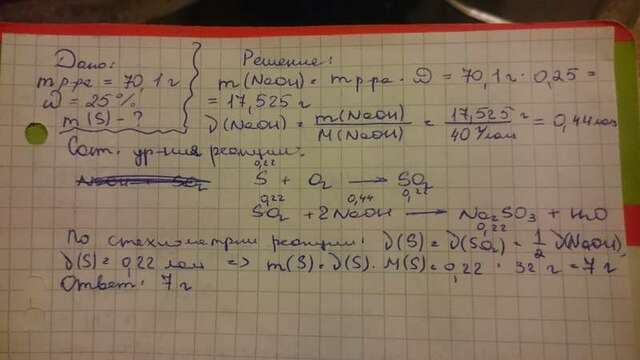 Дано:
mр-ра = 70,1 г
ω = 25%
m(S) - ?
Решение:
m(NaOH) = mр-ра · ω = 70,1 г · 0,25 =
= 17,525 г
ν(NaOH) = m(NaOH) / M(NaOH) = 17,525 г / 40 г/моль = 0,44 моль
Сост. ур-ния реакции:
0,22
S + O2 → SO2
0,22 0,44 0,22
SO2 + 2NaOH → Na2SO3 + H2O
0,22
По стехиометрии реакции: ν(S) = ν(SO2) = 1/2 ν(NaOH),
ν(S) = 0,22 моль => m(S) = ν(S) · M(S) = 0,22 · 32 г = 7 г
Ответ: 7 г